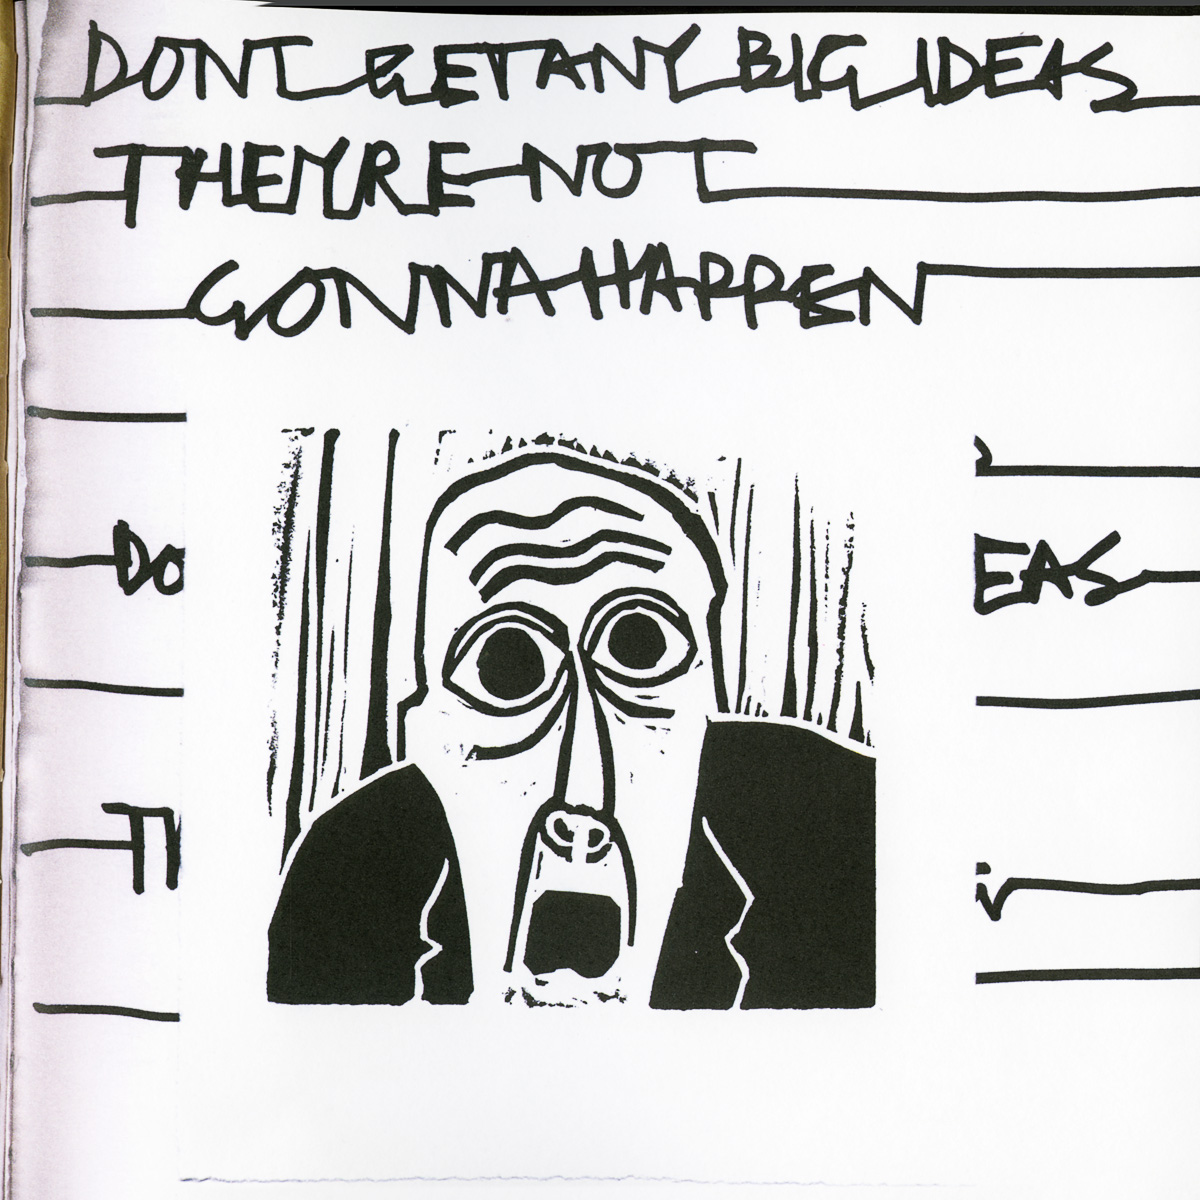 DONT GET ANY BIG IDEAS
THEYRE NOT
GONNA HAPPEN
DO EAS
TH